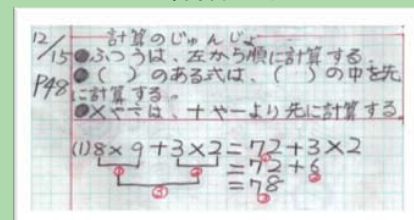 12/15 計算のじゅんじょ
P48 ●ふつうは、左から順に計算する。
●( )のある式は、( )の中を先
に計算する。
●×や÷は、+やーより先に計算する。
(1) 8×9+3×2=72+3×2
① ② =72+6
③ =78